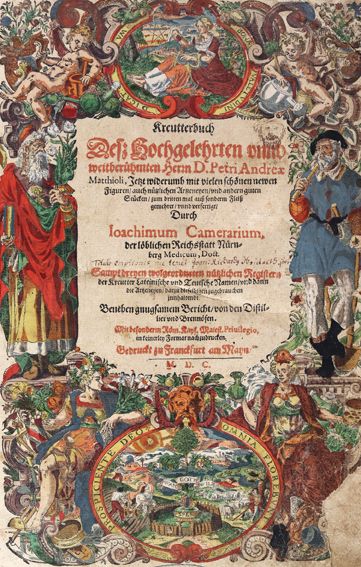 Kreutterbuch
Deß Hochgelehrten unnd
weitberühmten Herrn D. Petri Andreæ
Matthioli, Jetzt widerumb mit vielen schönen newen
Figuren / auch nützlichen Artzeneyen / und andern guten
Stücken / zum dritten mal auß sondern Fleiß
gemehret / unnd verfertigt /
Durch
Ioachimum Camerarium,
der löblichen Reichsstatt Nürn-
berg Medicum, Doct.
Sampt dreyen wolgeordneten nützlichen Registern
der Kreutter Lateinische und Teutsche Namen / und dann
die Artzeneyen / darzu dieselbigen zugebrauchen
innhaltendt.
Beneben gnugsamem Bericht / von den Distil-
lier und Brennöfen.
Mit besonderm Röm. Kays. Maiest. Priuilegio,
in keinerley Format nachzudrucken.
Gedruckt zu Franckfurt am Mayn.
M. D. C.
PROSPICIENTE DEO
OMNIA FLORE